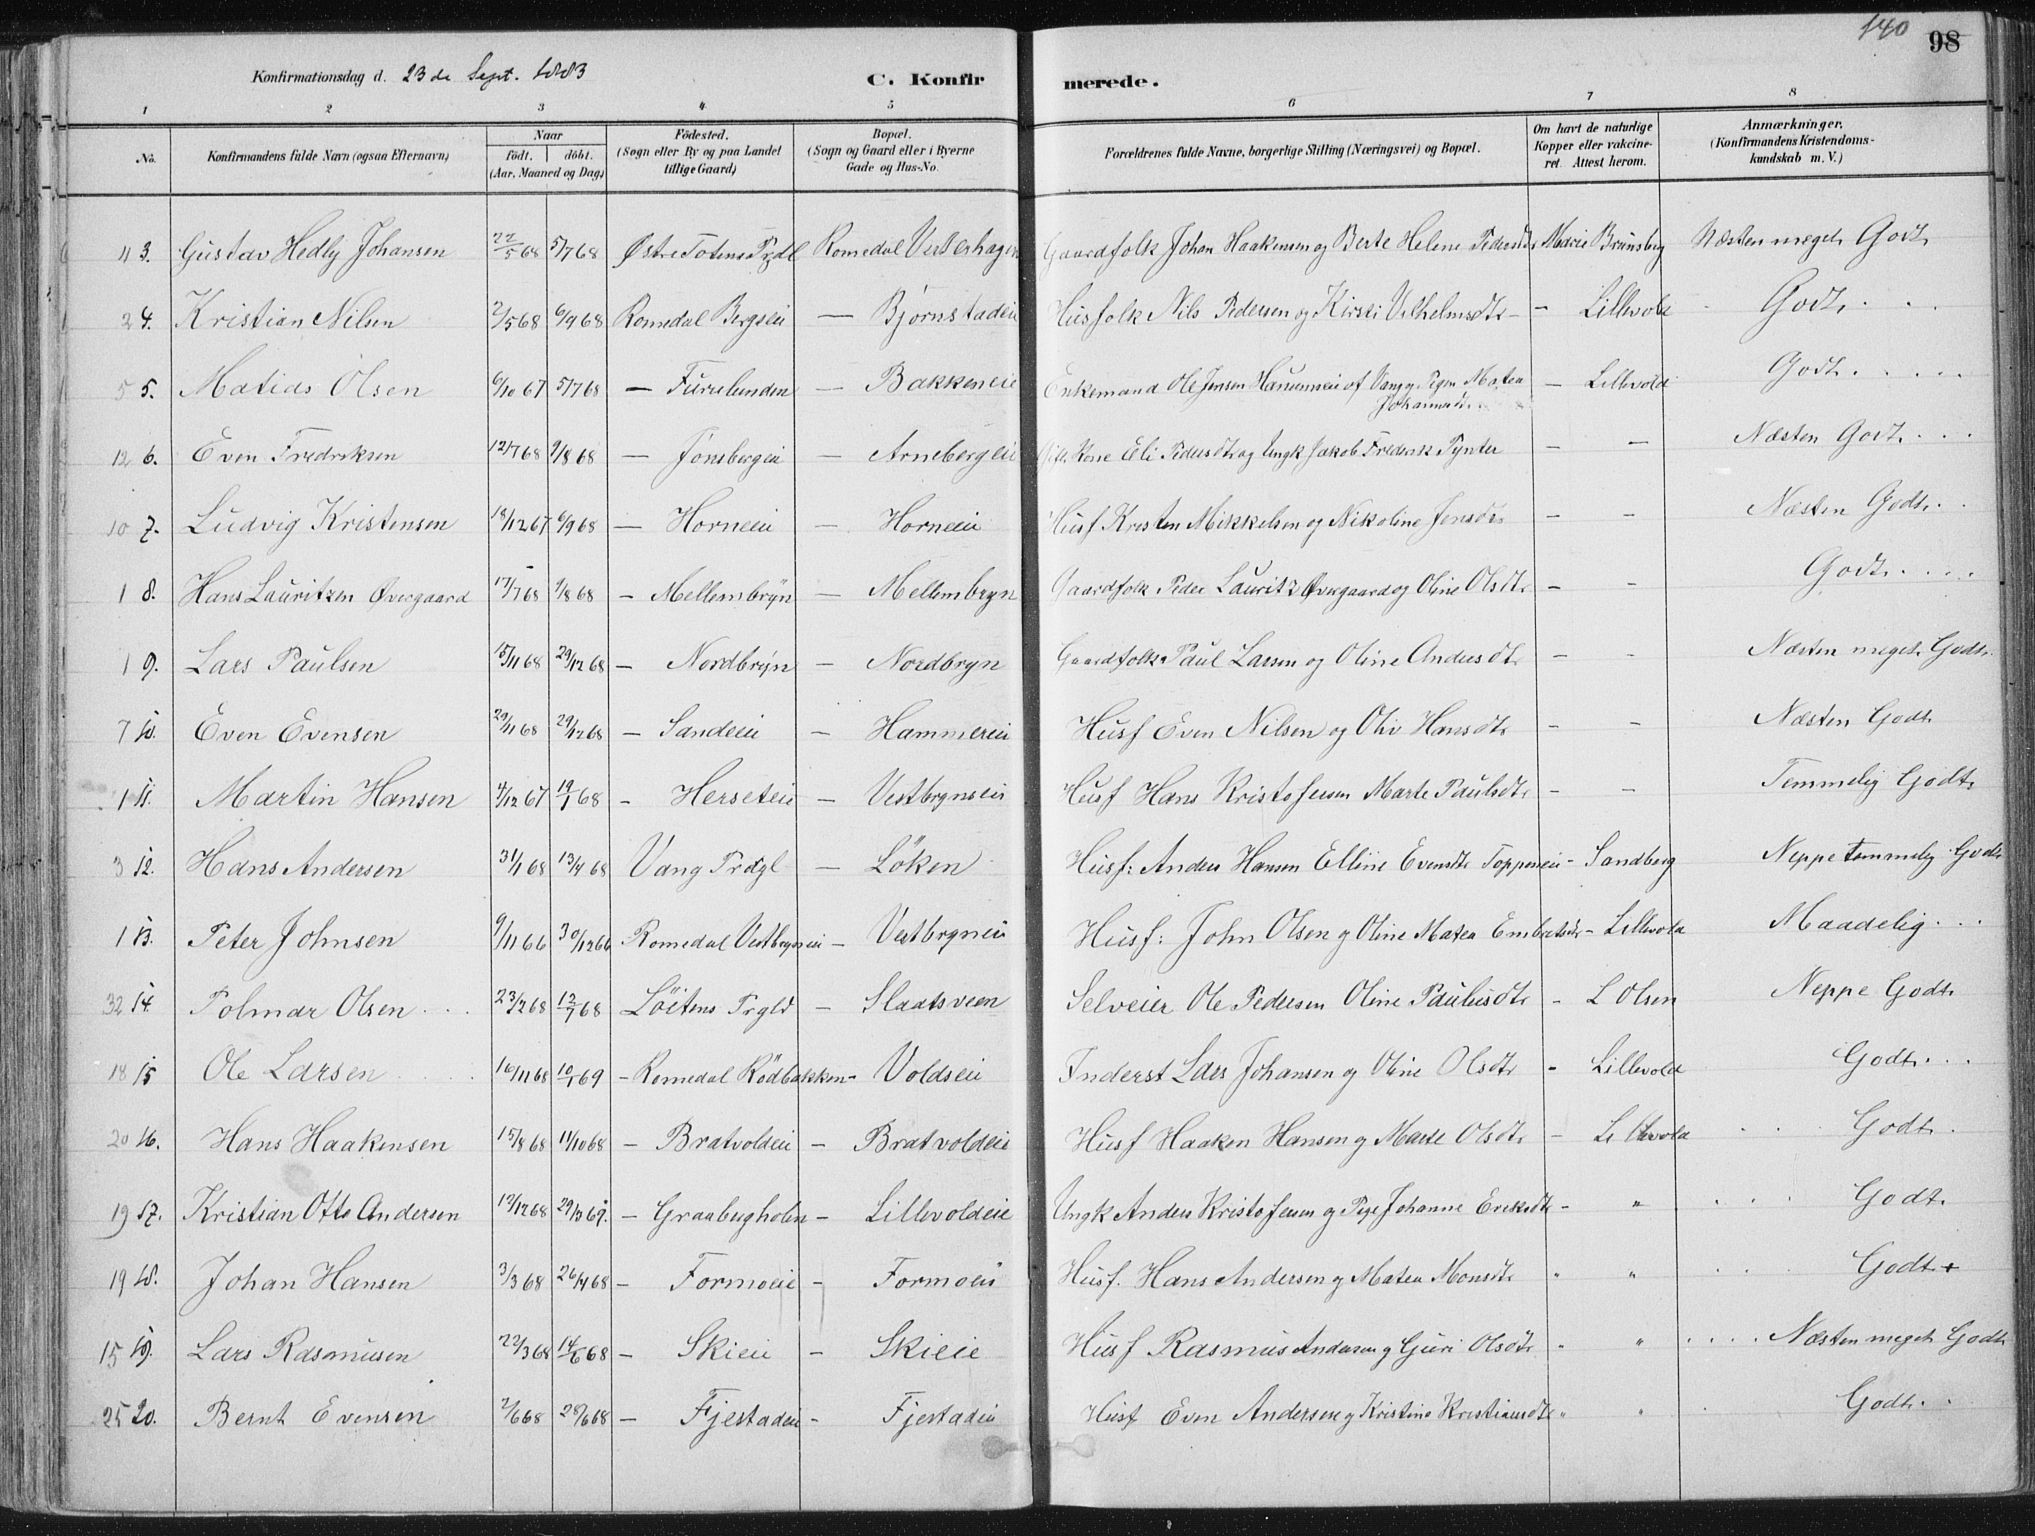 140
98
Konfirmationsdag d. 23de Sept. 1883
C. Konfirmerede.
1 2 3 4 5 6 7 8
No. Konfirmandens fulde Navn (ogsaa Efternavn) Naar födt. döbt. (Aar, Maaned og Dag) Födested. (Sogn eller By og paa Landet tillige Gaard) Bopæl. (Sogn og Gaard eller i Byerne Gade og Hus-No. Forældrenes fulde Navne, borgerlige Stilling (Næringsvei) og Bopæl. Om havt de naturlige Kopper eller vakcineret. Attest herom. Anmærkninger. (Konfirmandens Kristendomskundskab m. V.)
11 3. Gustav Hedly Johansen 22/5 68 5/7 68 Østre Totens Romedal Vesterhagen Gaardfolk Johan Haakensen og Berte Helene Marie Brunsberg Næsten meget Godt
2 4. Kristian Nilsen 2/5 68 6/9 68 Romedal Bergseie — Björnstadeie Husfolk Nils Pedersen og Kirsti Vilhelmsdtr — Lillevold Godt
5 5. Matias Olsen 6/10 67 5/7 68 — Furulunden — Bakkeneie Enkemand Ole Jensen af Vang og Pigen Matea Johannesdtr — Lillevold Godt
12 6. Even Fredriksen 12/7 68 9/8 68 — Jönsbergeie — Arnebergeie Kone Eli Pedersdtr og Ungk Jakob Fredrik Pynter — — Næsten Godt
10 7. Ludvig Kristensen 18/12 67 6/9 68 — Horneeie — Horneeie Husf Kristen Mikkelsen og Nikoline Jensdtr — — Næsten Godt
1 8. Hans Lauritzen Øvergaard 17/7 68 9/8 68 — Mellembryn — Mellembryn Gaardfolk Peder Lauritz Øvergaard og Oline Olsdtr — — Godt
1 9. Lars Paulsen 15/11 68 29/12 68 — Nordbryn — Nordbryn Gaardfolk Paul Larsen og Oline Andersdtr — — Næsten meget Godt
7 10. Even Evensen 29/11 68 29/12 68 — Sandeeie — Hammereie Husf Even Nilsen og Oliv Hansdtr — — Næsten Godt
1 11. Martin Hansen 4/12 67 19/1 68 — Herseteie — Vestbrynseie Husf Hans Kristofersen Marte Paulsdtr — — Temmelig Godt
3 12. Hans Andersen 31/1 68 13/4 68 Vang Prdgl — Löken Husf: Anders Hansen Elline Evensdtr Toppeneie — Sandberg Neppe temmelig Godt
1 13. Peter Johnsen 9/11 66 30/12 66 Romedal Vestbryneie — Vestbryneie Husf: John Olsen og Oline Matea Embretsdtr — Lillevold Maadelig
32 14. Polmar Olsen 23/2 68 12/7 68 Löitens Prgld — Slaatsveen Selveier Ole Pedersen Oline Paulusdtr — L Olsen Neppe Godt
18 15 Ole Larsen 16/11 68 10/1 69 — Romedal Rödbakken — Voldseie Inderst Lars Johansen og Oline Olsdtr — Lillevold Godt
20 16. Hans Haakensen 15/8 68 11/10 68 — Bratvoldeie — Bratvoldeie Husf Haaken Hansen og Marte Olsdtr — Lillevold Godt
19 17. Kristian Otto Andersen 12/12 68 29/3 69. — Graabergholen — Lillevoldeie Ungk Anders Kristofersen og Pige Johanne Eriksdtr — " Godt
19 18. Johan Hansen 3/3 68 26/4 68 — Formoeie — Formoeie Husf. Hans Andersen og Matea Monsdtr " " Godt +
15 19. Lars Rasmusen 22/3 68 14/6 68 — Skieie — Skieie Husf Rasmus Andersen og Guri Olsdtr " " Næsten meget Godt
25 20. Bernt Evensen 2/6 68 28/6 68 — Fjestadeie — Fjestadeie Husf Even Andersen og Kristine Kristiansdtr " " Godt